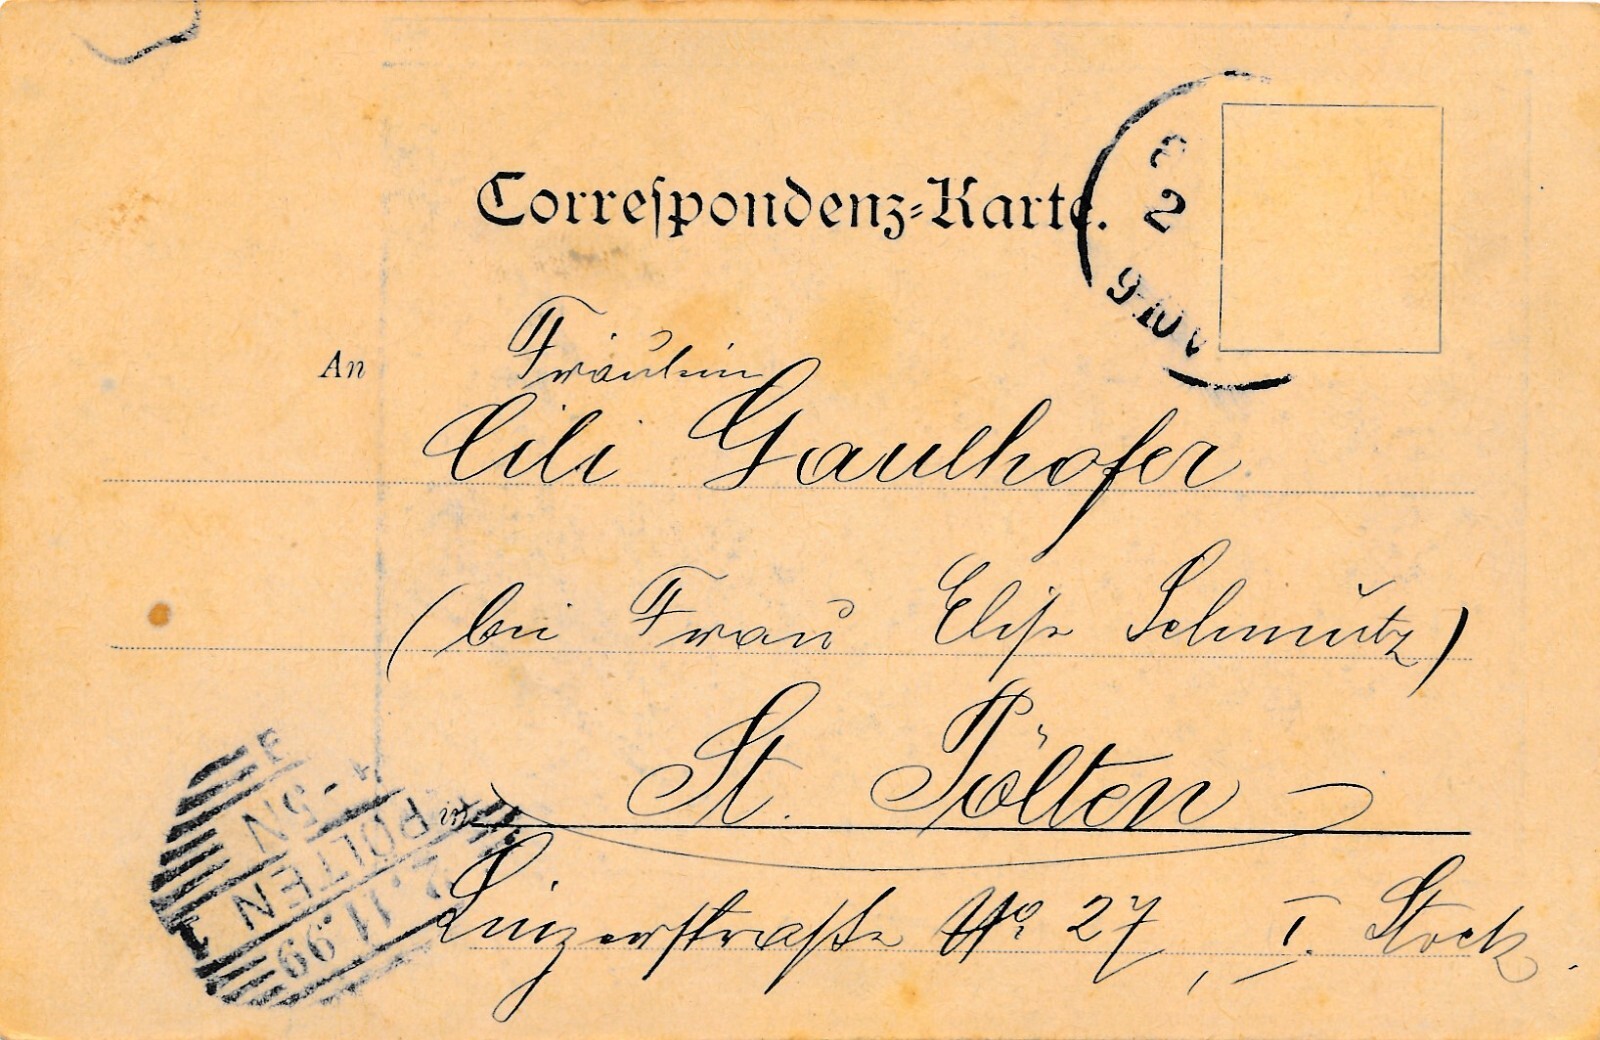 Correspondenz-Karte.
8
2
9-10 V
An
Fräulein
Cili Gaulhofer
(bei Frau Elise Schmutz)
St. Pölten
in
Linzerstraße No 27, I. Stock.
4-5N
PÖLTEN 1
2.11.99